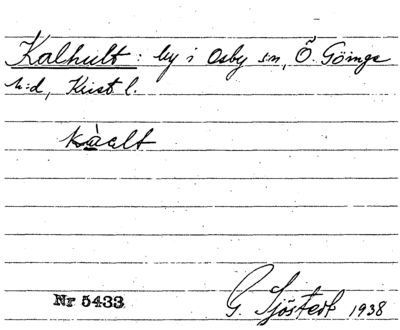 Kalhult: by i Osby sn, Ö. Göinge
h:d, Krist l.
kàalt
Nr 5433
G. Sjöstedt 1938